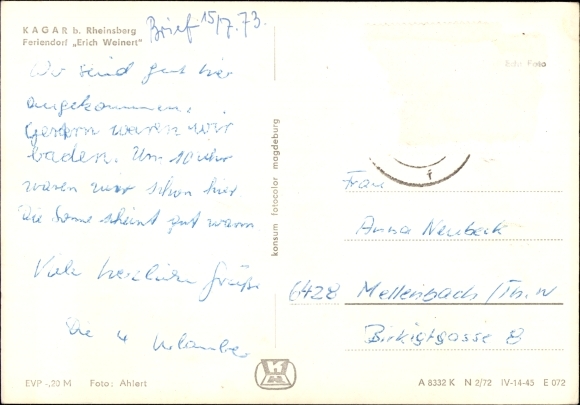 KAGAR b. Rheinsberg
Feriendorf „Erich Weinert"
Brief 15/7.73.
Wir sind gut hier
angekommen.
Gestern waren wir
baden. Um 10 Uhr
waren wir schon hier.
Die Sonne scheint gut warm
Viele herzlichen Grüße
Die 4 Urlauber
EVP -,20 M Foto: Ahlert
konsum fotocolor magdeburg
Foto
Frau
Anna Neubeck
6428 Mellenbach/Th.W
Birkigtgasse 8
A 8332 K N 2/72 IV-14-45 E 072